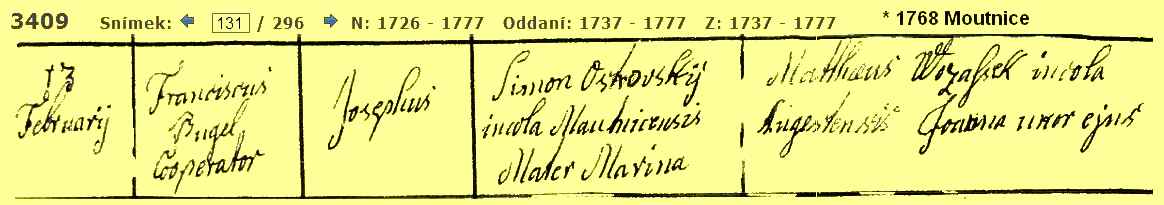 3409 Snímek: 131 / 296 N: 1726 - 1777 Oddaní: 1737 - 1777 Z: 1737 - 1777 * 1768 Moutnice
13
Februarij
Franciscus
Bugel
Cooperator
Josephus
Simon Ostrovskij
incola Mauthicensis
Mater Marina
Mathaeus Wozassek incola
Augestensis Joanna uxor ejus